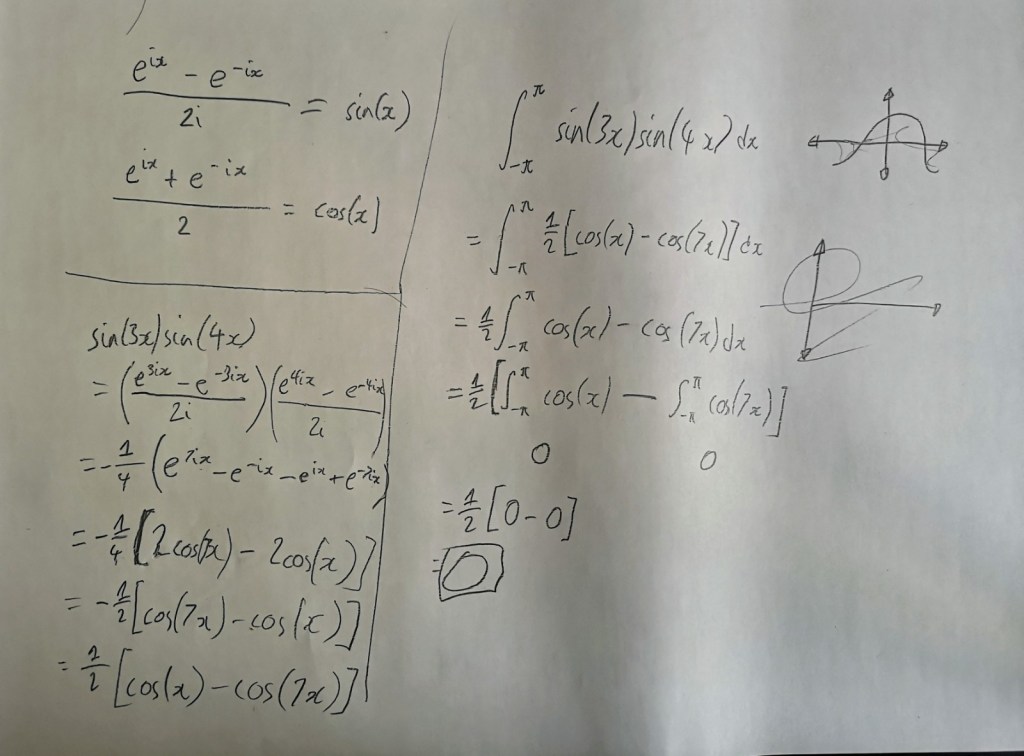 (e^{ix} - e^{-ix})/2i = sin(x)
(e^{ix} + e^{-ix})/2 = cos(x)
sin(3x)sin(4x)
= ((e^{3ix} - e^{-3ix})/2i)((e^{4ix} - e^{-4ix})/2i)
= -1/4 (e^{7ix} - e^{-ix} - e^{ix} + e^{-7ix})
= -1/4 [2cos(7x) - 2cos(x)]
= -1/2 [cos(7x) - cos(x)]
= 1/2 [cos(x) - cos(7x)]
∫_{-π}^{π} sin(3x)sin(4x)dx
= ∫_{-π}^{π} 1/2 [cos(x) - cos(7x)]dx
= 1/2 ∫_{-π}^{π} cos(x) - cos(7x)dx
= 1/2 [∫_{-π}^{π} cos(x) - ∫_{-π}^{π} cos(7x)]
0 0
= 1/2 [0 - 0]
= 0